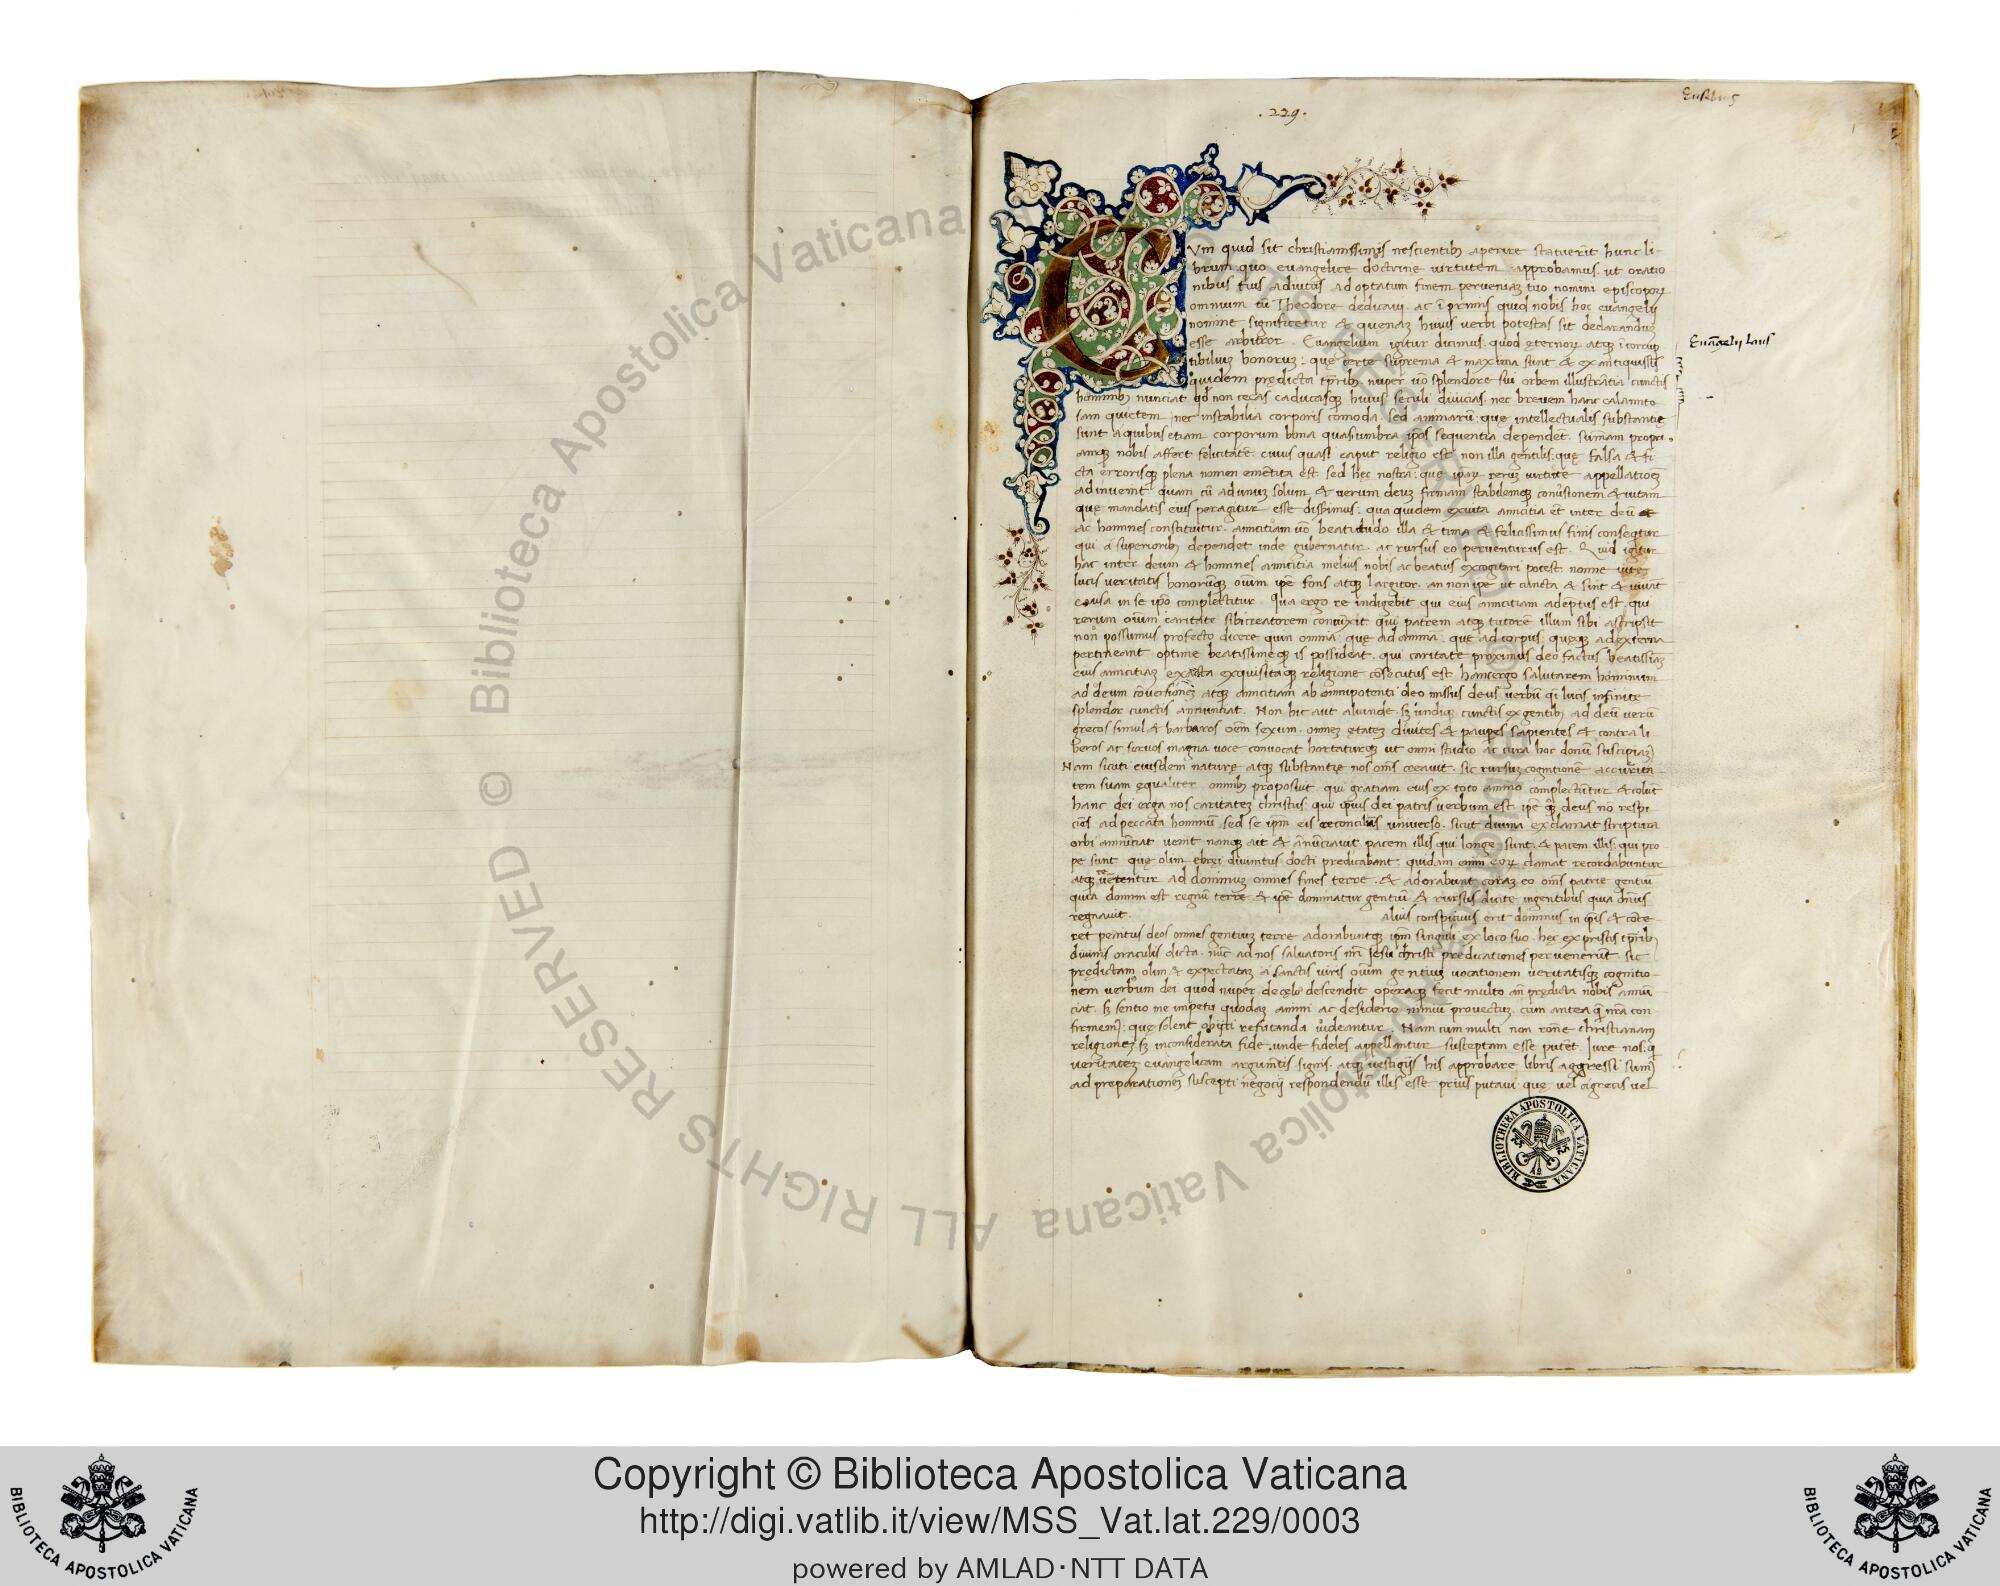 Eusebius
. 229 .
Vm quid sit christianissimus nescientib9 aperire statuerim hunc li
brum quo evangelice doctrine virtutem approbamus. ut oratio
nibus tuis adiutus ad optatum finem perveniaz tuo nomini episcopoꝝ
omnium tū Theodore dedicavi. ac ī primis quid nobis hoc evangelij
nomine significetur & quenaz huius verbi potestas sit declaranduz
esse arbitror. Evangelium igitur dicimus. quod ęternoꝝ atqꝫ īcorrup
tibiliuz bonoruz: que certe suprema & maxima sunt & ex antiquissīs
quidem prędicta tp̄ribꝫ nuper vō splendore sui orbem illustrātia cunctis
hominibꝫ nunciat qd non cecas caducasqꝫ huius seculi divicias. nec brevem hanc calamito
sam quietem nec instabilia corporis comoda sed animarū: quę intellectualis substantie
sunt a quibus etiam corporum bona quasi umbra ip̄os sequentia dependēt. sūmam propri
amqꝫ nobis affert felicitatē. cuius quasi caput religio est non illa gentilis: quę falsa & fi
cta errorisqꝫ plena nomen emētita est sed hęc nostra: que ipaꝝ reruz virtute appellationē
adinvenit quam cū ad unuz solum & verum deuz firmam stabilemqꝫ conversionem & vitam
quę mandatis eius peragitur esse diffinimus: qua quidem ex vita amicitia ēt inter deū &
ac homines constituitur. amicitiam vō beatitudo illa & tima & felicissimus finis consequitur
qui a superioribꝫ dependet inde gubernatur. ac rursus eo perventurus est. Quid igitur
hac inter deum & homines amicitia melius nobis ac beatius excogitari potest. nonne vite
lucis veritatis honorūqꝫ oīum ipē fons atqꝫ largitor. an non ipe ut cuncta & sint & vivāt
causa in se ipō complectitur. Qua ergo re indigebit qui eius amicitiam adeptus est. qui
rerum oīum caritate sibi creatorem coniūxit qui patrem atqꝫ tutorē illum sibi ascripsit
non possumus profecto dicere quia omnia: quę ad anima: que ad corpus: quęqꝫ ad externa
pertineant optime beatissimeqꝫ is possideat. qui caritate proximus deo factus beatissīaz
eius amicitiaz exacta exquisitaqꝫ religione cōsecutus est. hanc ergo salutarem hominum
ad deum cōversionez atqꝫ amicitiam ab omnipotenti deo missus deus verbū qi lucis infinite
splendor cunctis annunciat. Non hic aut aliunde. sꝫ undiqꝫ cunctis ex gentibꝫ ad deū verū
grecos simul & barbaros oēm sexum. omnez ętatez divites & pauperes sapientes & contra li
beros ac servos magna voce convocat hortaturqꝫ ut omni studio ac cura hoc donū suscipiaz
Nam sicuti eiusdem naturę atqꝫ substantię nos oms creavit. sic rursuz cognitionē
tem suam equaliter omnibꝫ proposuit qui gratiam eius ex toto animo complectūtur & colūt
hanc dei erga nos caritatez christus: qui ipsius dei patris verbum est. ipē deus nō respi
ciēs ad peccata hominū sed se ipm eis reconciliās universo. sicut divina exclamat scriptura
orbi annūciat venit nanqꝫ ait & ānūciavit pacem illis qui longe sunt. & pacem illis: qui pro
pe sunt que olim ebręi divinitus docti predicabant. quidam enim eoꝝ clamat recordabuntur
atqꝫ revertentur ad dominuz omnes fines terre. & adorabunt coraz eo oms patrie gentiū
quia domini est regnū terre & ipē dominatur gentiū & rursus dicite in gentibus quia dn̄us
regnavit. alius conspicuus erit dominus in ipīs & cōte
ret penitus deos omnes gentiuz terre adorabuntqꝫ ipm singuli ex loco suo. hęc ex priscis tp̄ribꝫ
divinis oraculis dicta. nūc ad nos salvatoris nrī Jesu christi predicationes pervenerūt. sic
predictam olim & expectataz a sanctis viris oīum gentiuz vocationem veritatisqꝫ cognitio
nem verbum dei quod nuper de cęlo descendit operaqꝫ fecit multo añ prędicta nobis annū
ciat. sꝫ sentio me impetu quodaz animi ac desiderio nimiū provectuz. cum antea nrā con
firmem: quę solent obijci refutanda videantur. Nam cum multi non rōne christianam
religionez sꝫ inconsiderata fide. unde fideles appellantur susceptam esse putēt. Jure nos: qi
veritatez evangelicam argumētis signis. atqꝫ vestigijs his approbare libris aggressi sum9
ad preparationez suscepti negocij respondendū illis esse prius putavi que vel a grecis vel
Evāgelij laus
BIBLIOTHECA APOSTOLICA VATICANA
© Biblioteca Apostolica Vaticana ALL RIGHTS RESERVED
Copyright © Biblioteca Apostolica Vaticana
http://digi.vatlib.it/view/MSS_Vat.lat.229/0003
powered by AMLAD·NTT DATA
BIBLIOTECA APOSTOLICA VATICANA
BIBLIOTECA APOSTOLICA VATICANA